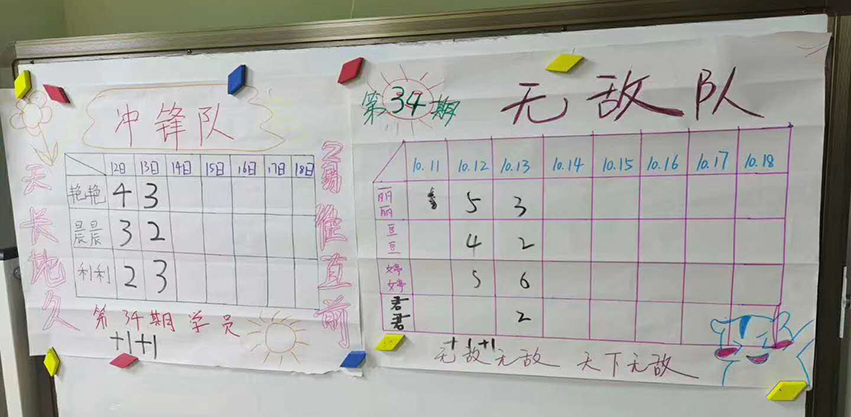 冲锋队
12日 13日 14日 15日 16日 17日 18日
艳艳 4 3
晨晨 3 2
利利 2 3
天长地久
往直前
第34期学员
+1+1
第34期 无敌队
10.11 10.12 10.13 10.14 10.15 10.16 10.17 10.18
丽丽 5 3
豆豆 4 2
婷婷 5 6
君君 2
+1+1
无敌无敌 天下无敌